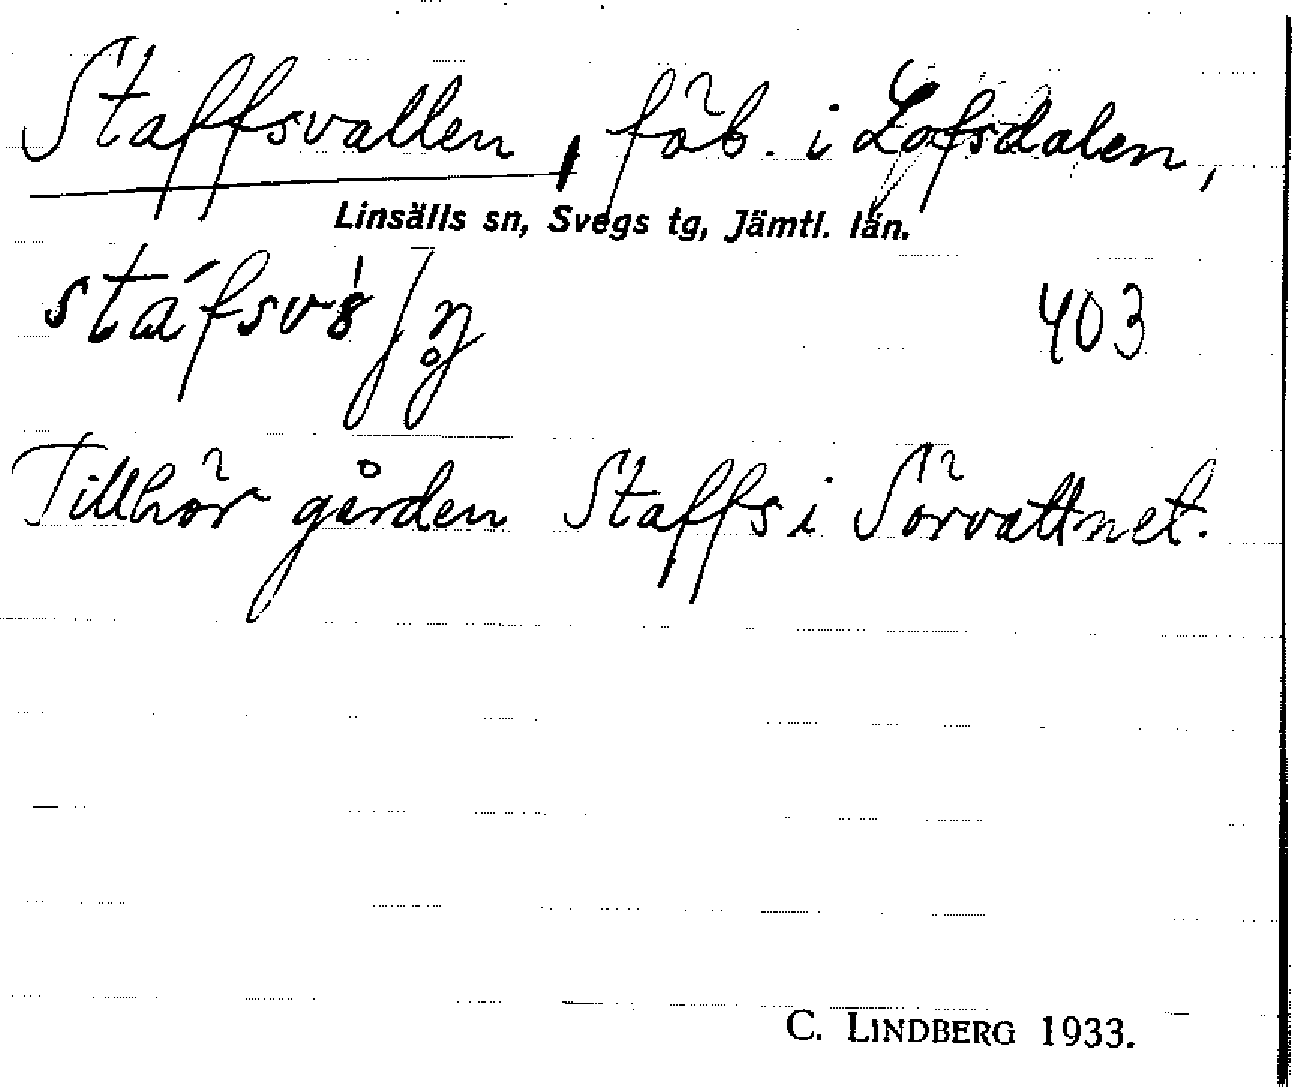 Staffsvallen, fäb. i Lofsdalen,
Linsälls sn, Svegs tg, Jämtl. län.
403
Tillhör gården Staffs i Sörvattnet.
C. LINDBERG 1933.